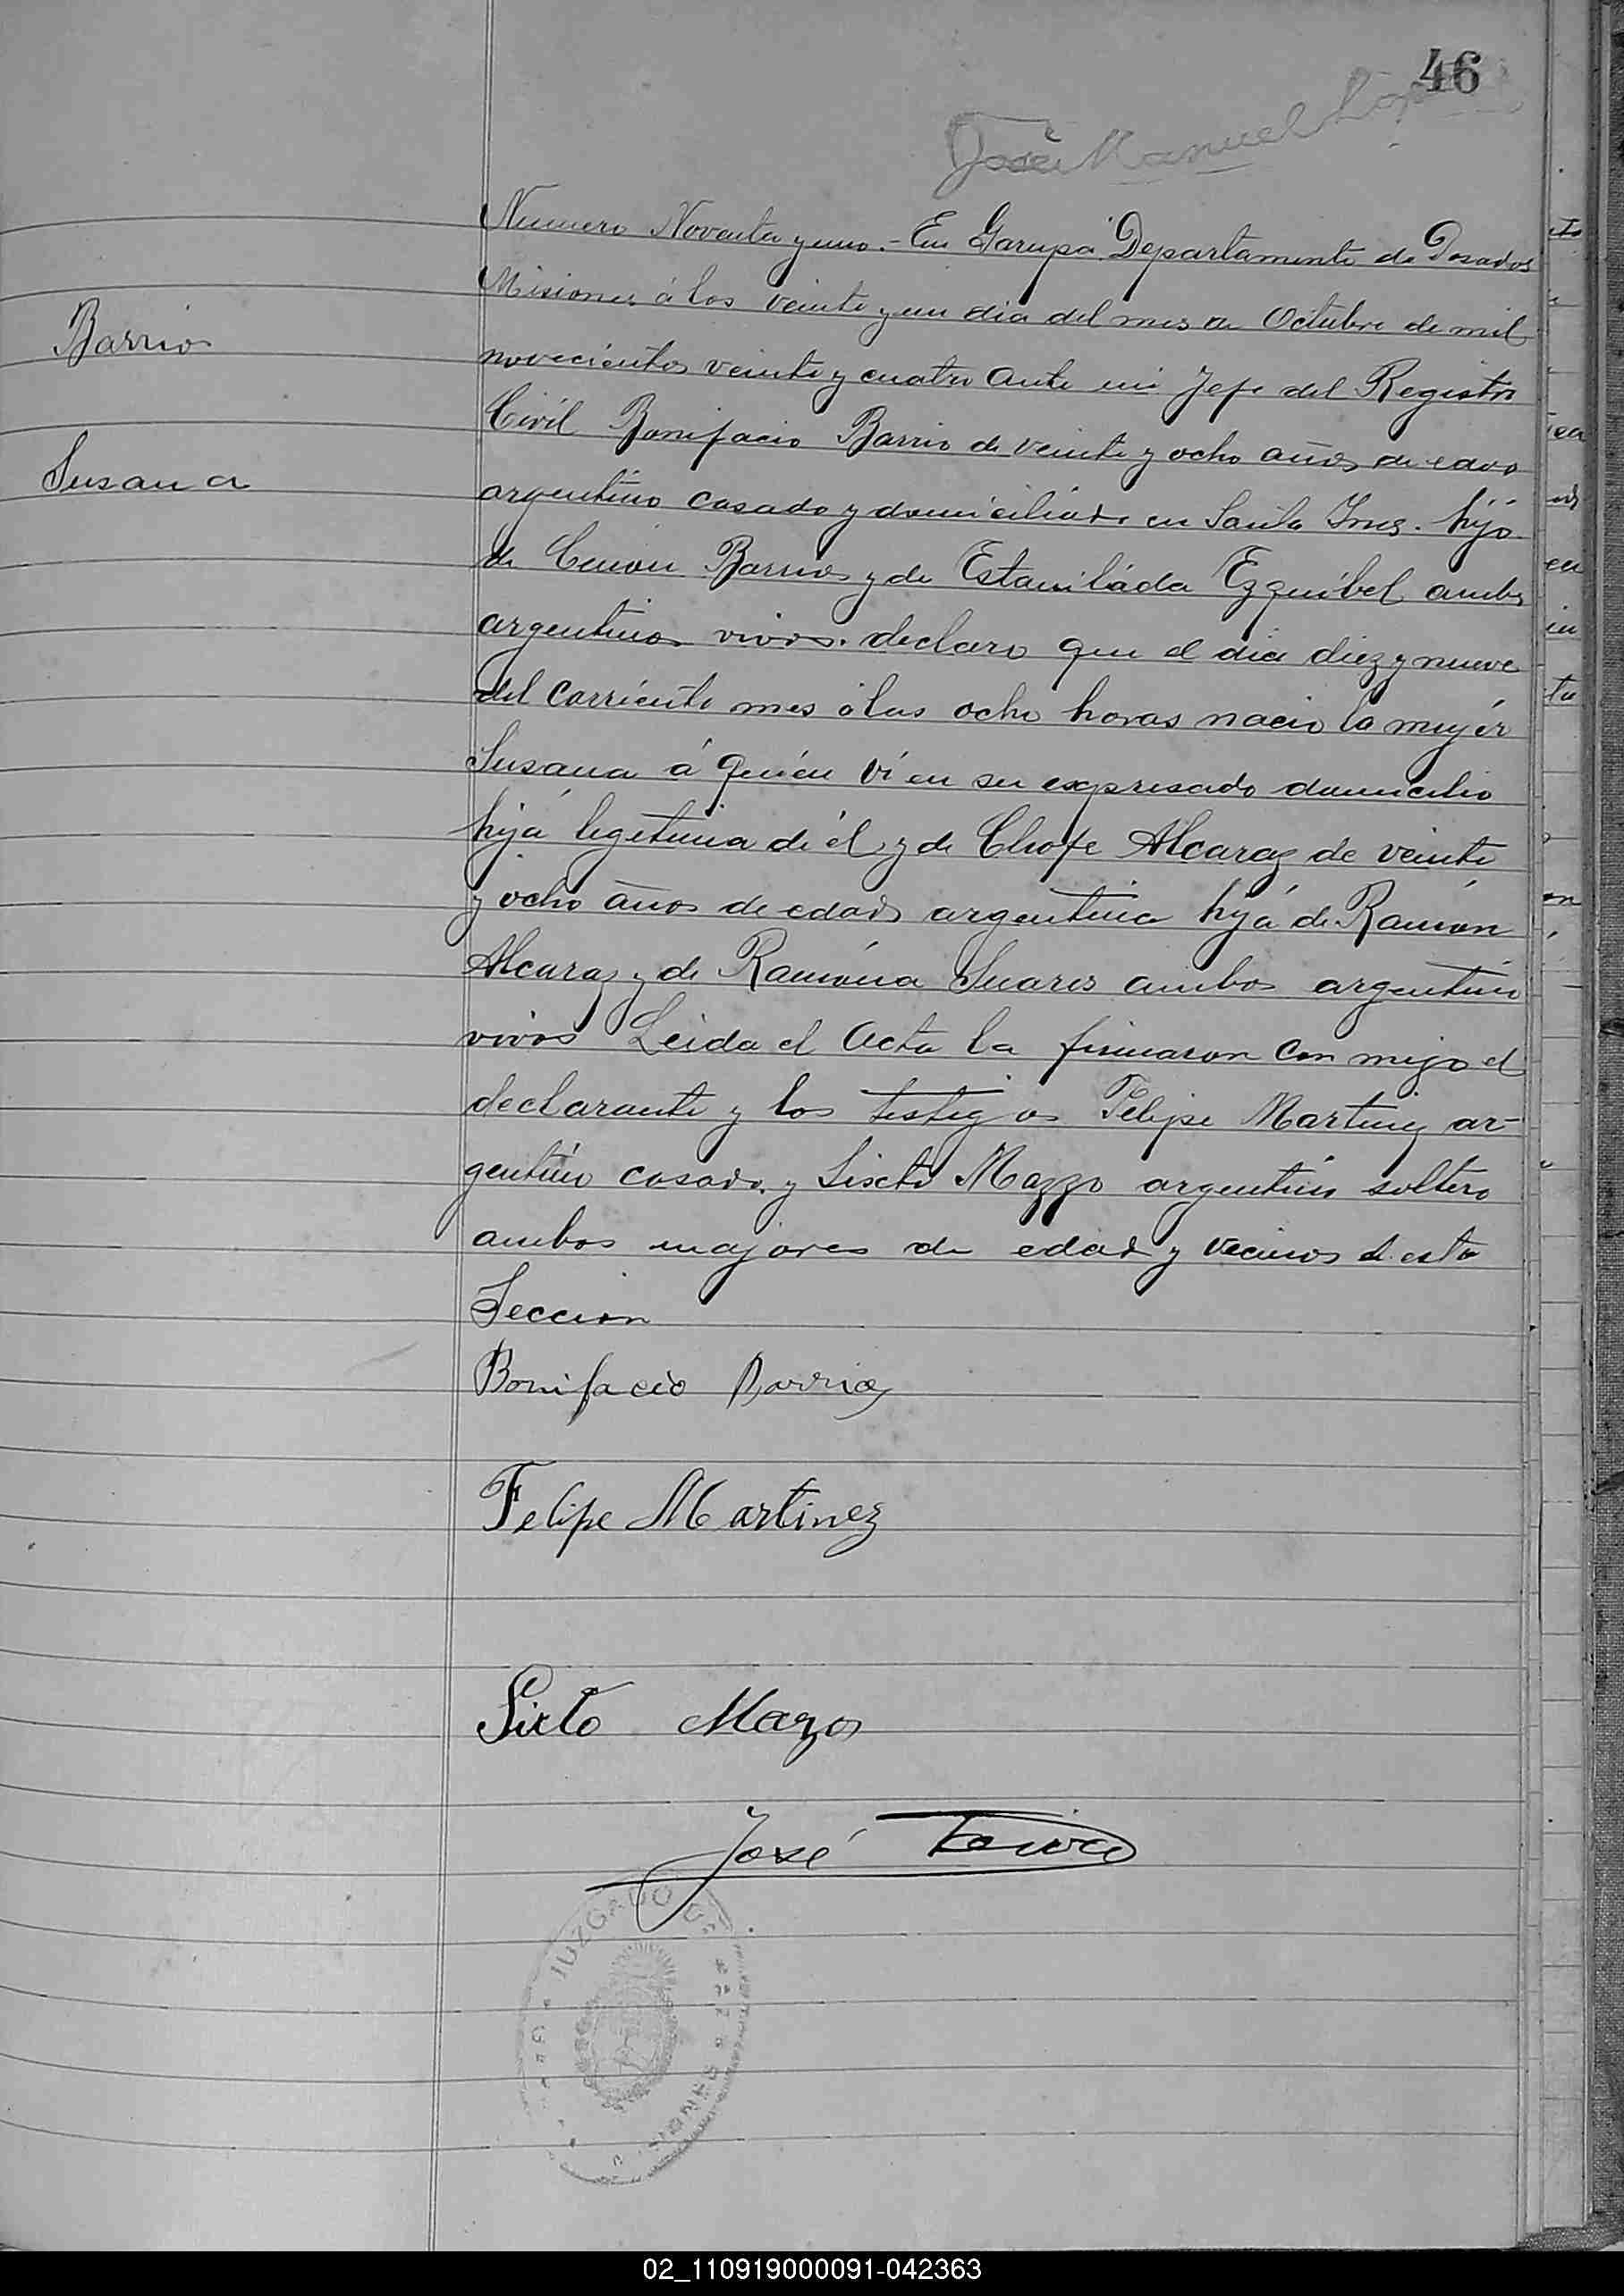 46
José Manuel
Numero Noventa y uno.- En Garupá Departamento de Posadas
Misiones á los veinte y un dia del mes de Octubre de mil
Barrio
novecientos veinte y cuatro ante mi Jefe del Registro
Civil Bonifacio Barrio de veinte y ocho años de edad
Susana
argentino casado y domiciliado en Santa Ines. hijo
de Cenon Barrios y de Estaniláda Ezquibel ambos
argentinos vivos. declaro que el dia diez y nueve
del corriente mes á las ocho horas nacio la mujer
Susana á quien ví en su expresado domicilio
hija legitima de él y de Clrofe Alcaraz de veinte
y ocho años de edad argentina hija de Ramón
Alcaraz y de Ramóna Suares ambos argentino
vivos Leida el Acta la firmaron con migo el
declarante y los testigos Felipe Martinez ar-
gentino casado y Sixto Mazzo argentino soltero
ambos majores de edad y vecinos de esta
Seccion
Bonifacio Barrios
Felipe Martinez
Sixto Mazo
José
JUZGADO
02_110919000091-042363